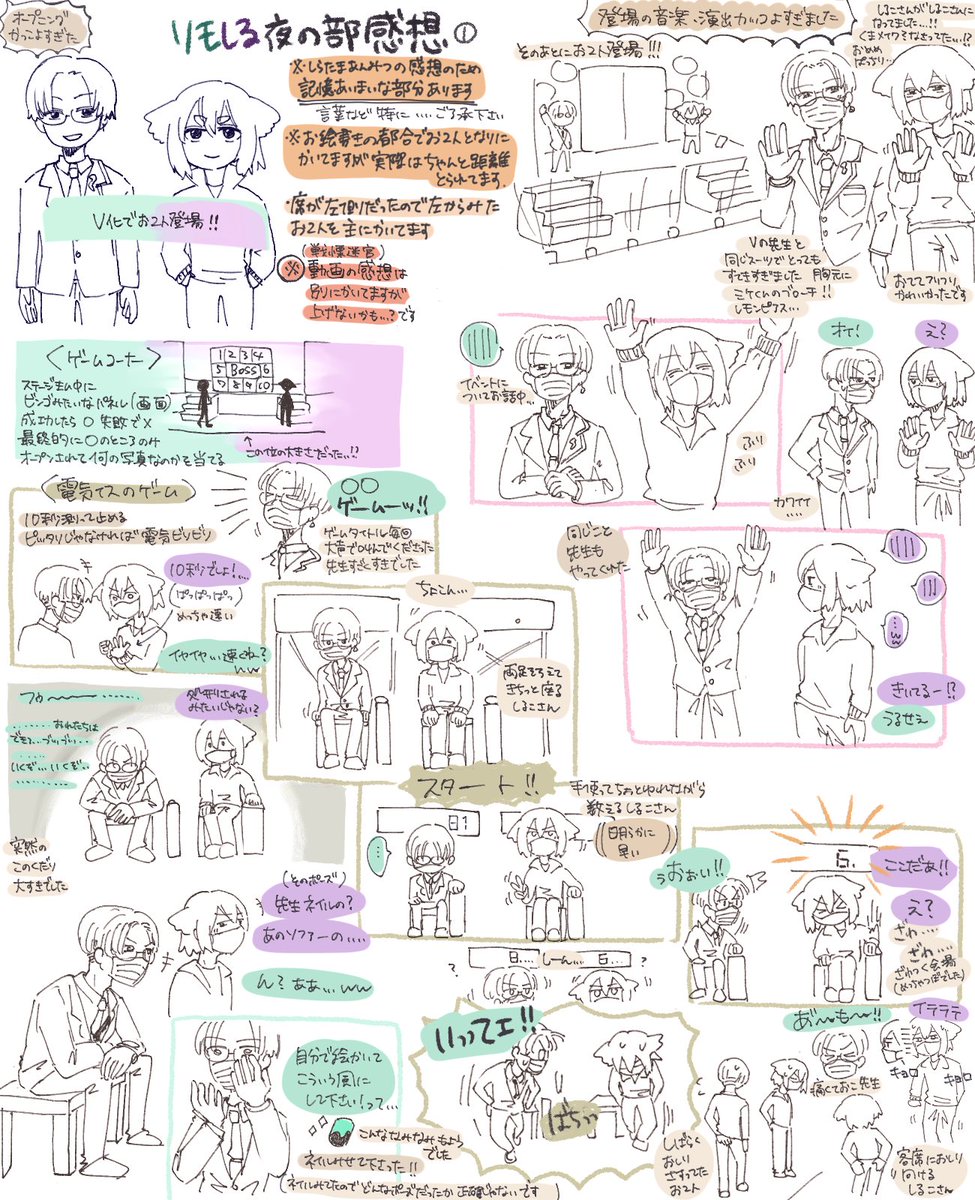 オープニング
かっこよすぎた
リモしる夜の部感想①
※しらたまあんみつの感想のため
記憶あいまいな部分あります
言葉など特に....ご了承下さい
※お絵書きの都合でお2人となりに
かいてますが実際はちゃんと距離
とられてます。
・席が左側だったので左からみた
お2人を主にかいてます
(戦慄迷宮)
※動画の感想は
別にかいてますが
上げないかも...?です
V化でお2人登場!!
登場の音楽、演出カッコよすぎました
そのあとにお2人登場!!!
しるこさんがしるこさんに
なってました...!!
おめめ
ぱっちり...
Vの先生と
同じスーツでとっても
すてきすぎました 胸元に
ミケくんのブローチ!!
レモンピクス...
おててフリフリ
かわいかったです
<ゲームコーナー>
ステージ真ん中に
ビンゴみたいなパネル(画面)
成功したら○ 失敗で×
最終的に○のところのみ
オープンされて何の写真なのかを当てる
1 2 3 4
5 Boss 6
7 8 9 10
この位の大きさだった..!?
イベントに
ついてお話中...
ふり
ふり
オイ!
え?
カワイイ
....
<電気イスのゲーム>
10秒測って止める
ピッタリじゃなければ電気ビリビリ
○○
ゲームーッ!!
ゲームタイトル毎回
大声で叫んでくださった
先生すごくすきでした
10秒でしょ!...
(ぱっぱっぱっ)
めっちゃ速い
イヤイヤ...速くね?
ww
同じこと
先生も
やってくれた
...ww
きいてるー!?
うるせえ
ちょこん...
両足そろえて
きちっと座る
しるこさん
フゥーーー......
......おれたちは
できる...づいづい..
......
いくぞ...いくぞ...
..........
みたいじゃない?
突然の
このくだり
大すきでした
スタート!!
手使ってちょっとゆれながら
教えるしるこさん
(明らかに
早い)
...
うおぉい!!
6.
ここだぁ!!
え?
ざわ...
ざわ...
ざわつく会場
(めっちゃつっぱってした)
(そのポーズ)
先生ネイルの?
あのソファーの....
ん? ああ...ww
8.... しーん... 6...
自分で絵かいて
こういう風に
して下さい!って...
こんななみなみもよう
でした
ネイルみせて下さった!!
(ネイルみてたのでどんなポーズだったか正確じゃないです)
いってェ!!
ばちっ
しばらく
おしり
さすってた
お2人
あ゛〜も〜!!
イライラ
痛くておこ先生
キョロ
キョロ
客席におしり
向ける
しるこさん